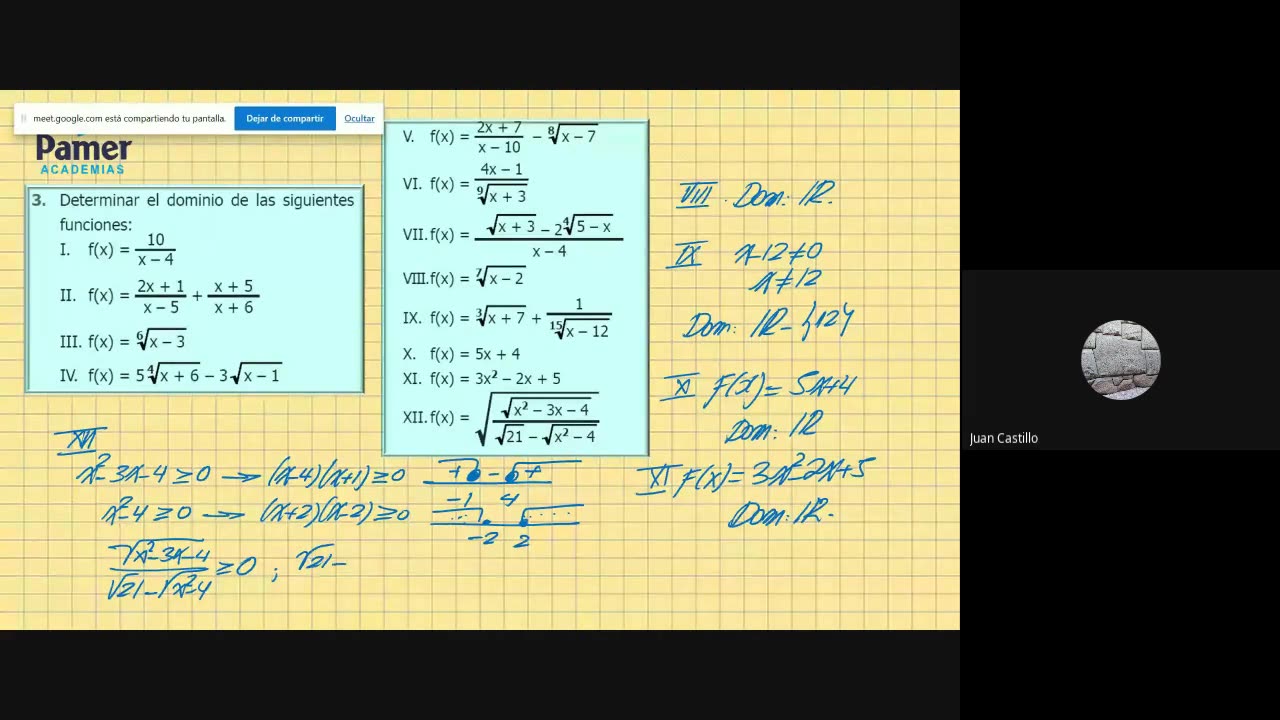 meet.google.com está compartiendo tu pantalla. Dejar de compartir Ocultar
Pamer
ACADEMIAS
3. Determinar el dominio de las siguientes
funciones:
I. f(x) = 10/(x − 4)
II. f(x) = (2x + 1)/(x − 5) + (x + 5)/(x + 6)
III. f(x) = ⁶√(x − 3)
IV. f(x) = 5⁴√(x + 6) − 3√(x − 1)
V. f(x) = (2x + 7)/(x − 10) − ⁸√(x − 7)
VI. f(x) = (4x − 1)/⁹√(x + 3)
VII. f(x) = (√(x + 3) − 2⁴√(5 − x))/(x − 4)
VIII. f(x) = ⁷√(x − 2)
IX. f(x) = ³√(x + 7) + 1/¹⁵√(x − 12)
X. f(x) = 5x + 4
XI. f(x) = 3x² − 2x + 5
XII. f(x) = √(√(x² − 3x − 4)/(√21 − √(x² − 4)))
VIII. Dom: IR.
IX x-12≠0
x≠12
Dom: IR-{12}
X F(x)= 5x+4
Dom: IR
XI F(x)= 3x²-2x+5
Dom: IR.
XII
x²-3x-4≥0 → (x-4)(x+1)≥0 + - +
-1 4
x²-4≥0 → (x+2)(x-2)≥0
-2 2
√(x²-3x-4)/(√21-√(x²-4)) ≥0 ; √21-
Juan Castillo